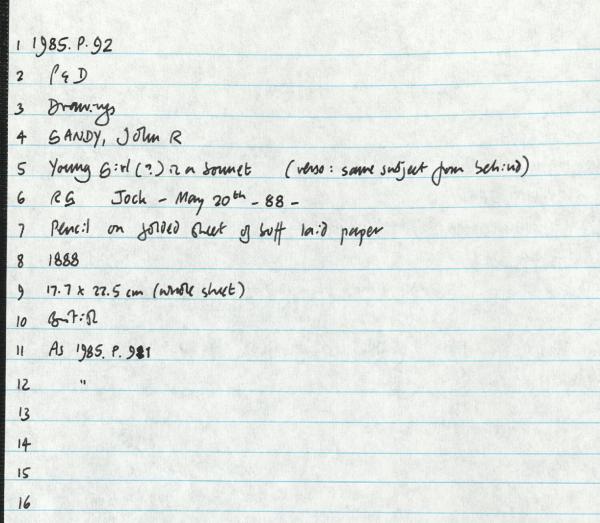 1 1985.P.92
2 P&D
3 Drawings
4 SANDY, John R
5 Young Girl (?) in a bonnet (verso: same subject from behind)
6 RS Jock - May 20th - 88 -
7 Pencil on folded sheet of buff laid paper
8 1888
9 17.7 x 22.5 cm (whole sheet)
10 British
11 As 1985.P.91
12 "
13
14
15
16